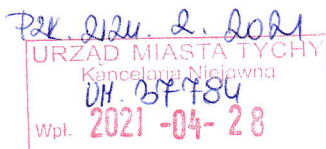 PZK. 2124. 2. 2021
URZĄD MIASTA TYCHY
Kancelaria Niejawna
UM. 37784
Wpł. 2021 -04- 28